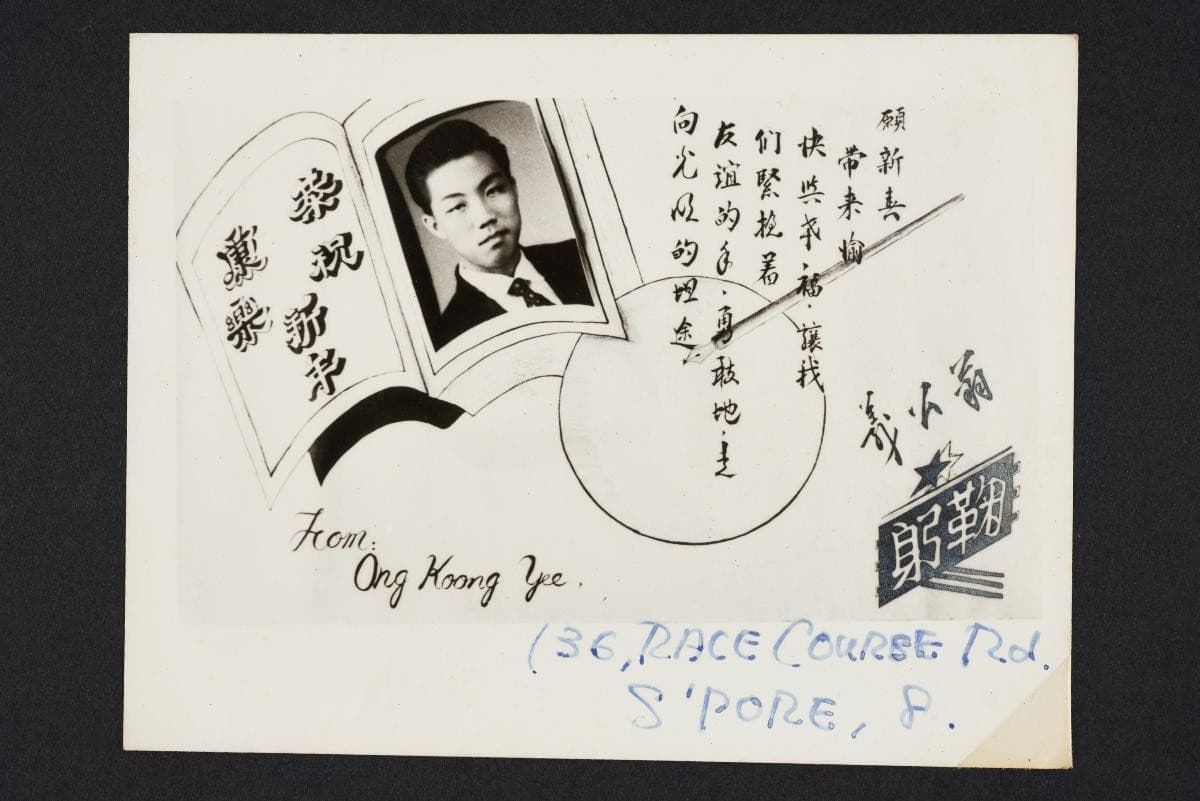 恭祝新年
康樂
願新春
帶来愉
快與幸福，讓我
们緊挽着
友誼的手，勇敢地，走
向光明的坦途
翁公義
鞠躬
From:
Ong Koong Yee.
136, RACE COURSE Rd.
S'PORE, 8.